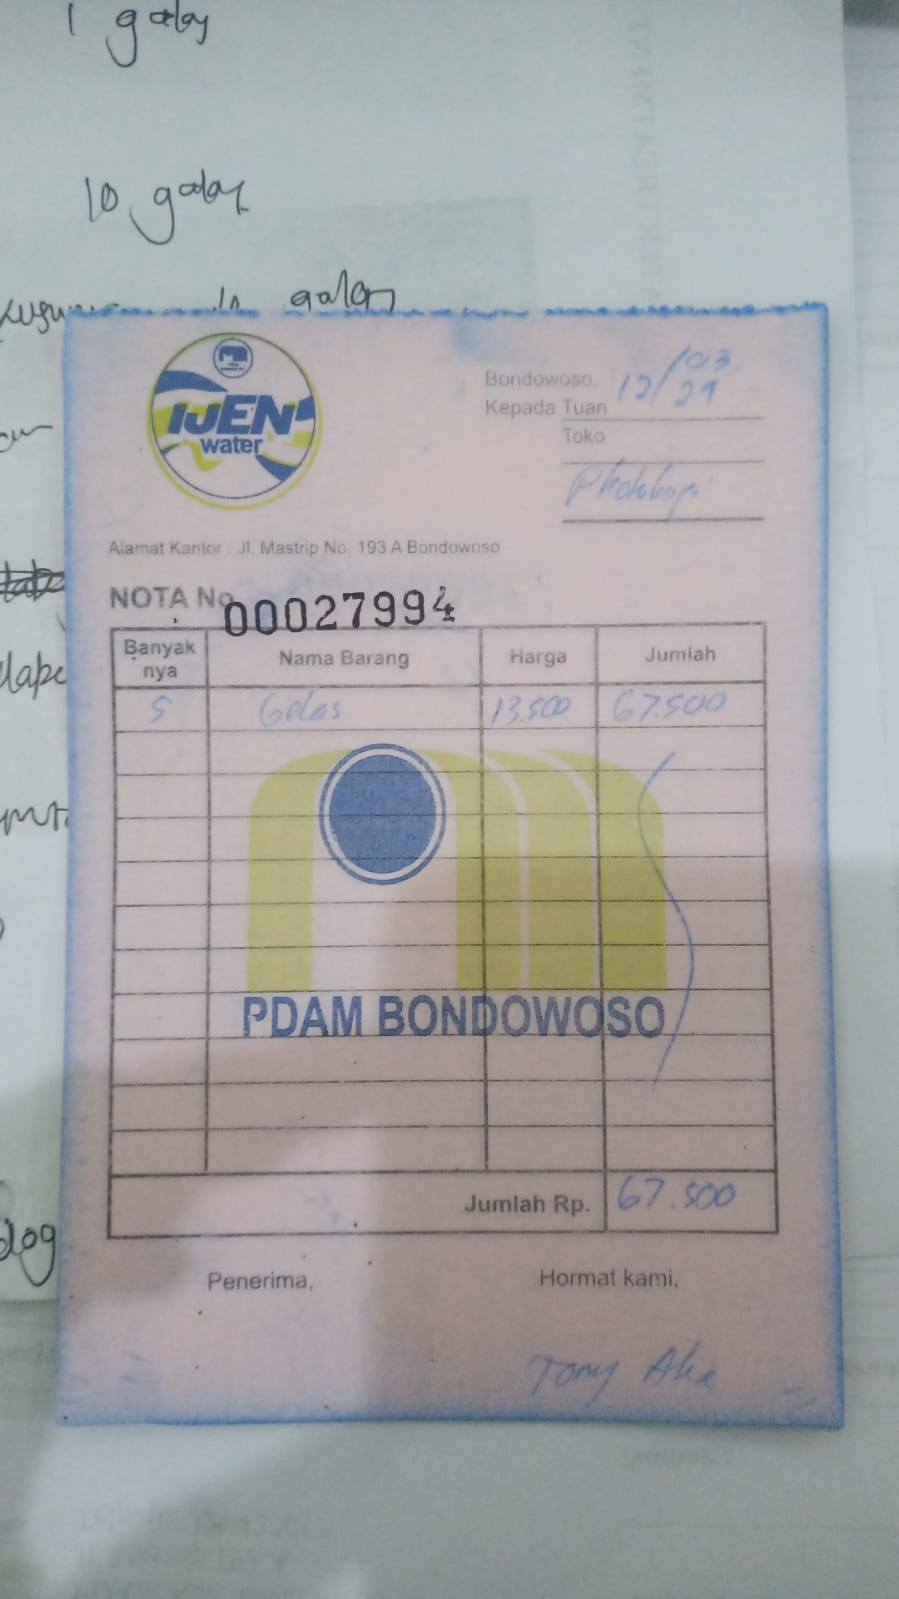 1 galon
10 galon
10 galon
IJEN
water
Bondowoso, 12/03
Kepada Tuan
Toko
Photokopi
Alamat Kantor : Jl. Mastrip No. 193 A Bondowoso
NOTA No. 00027994
Banyak nya Nama Barang Harga Jumlah
5 Gelas 13.500 67.500
PDAM BONDOWOSO
Jumlah Rp. 67.500
Penerima, Hormat kami,
Tony